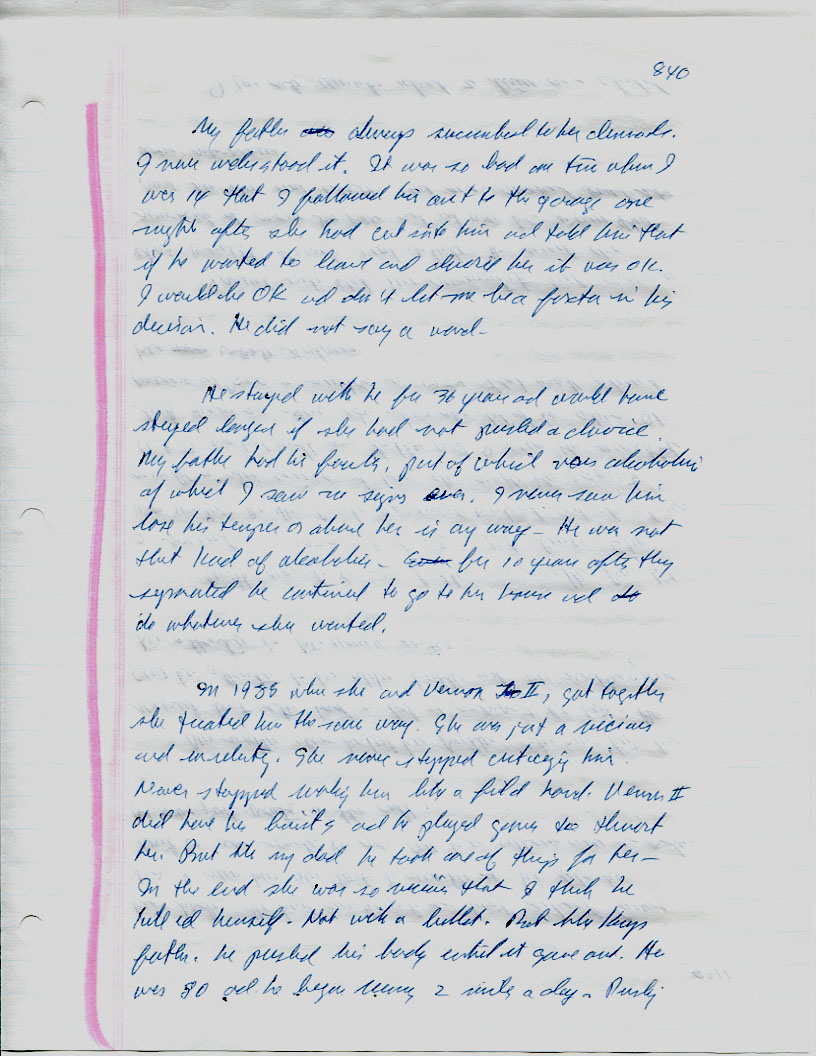 840
My father always succumbed to her demands.
I never understood it. It was so bad one time when I
was 14 that I followed him out to the garage one
night after she had cut into him and told him that
if he wanted to leave and divorce her it was OK.
I would be OK and don't let me be a factor in his
decision. He did not say a word -
He stayed with her for 36 years and would have
stayed longer if she had not pushed a divorce.
My father had his faults, part of which was alcoholism
of which I saw no signs ever. I never saw him
lose his temper or abuse her in any way - He was not
that kind of alcoholic - for 10 years after they
separated he continued to go to her house and
do whatever she wanted.
In 1985 when she and Vernon II, got together
she treated him the same way. She was just a vicious
and . She never stopped criticizing him.
Never stopped working him like a field hand. Vernon II
did have his limits and he played games to thwart
her. But like my dad he took care of things for her -
In the end she was so vicious that I think he
killed himself. Not with a bullet. But like Kays
father. he pushed his body until it gave out. He
was 80 and he began running 2 miles a day -